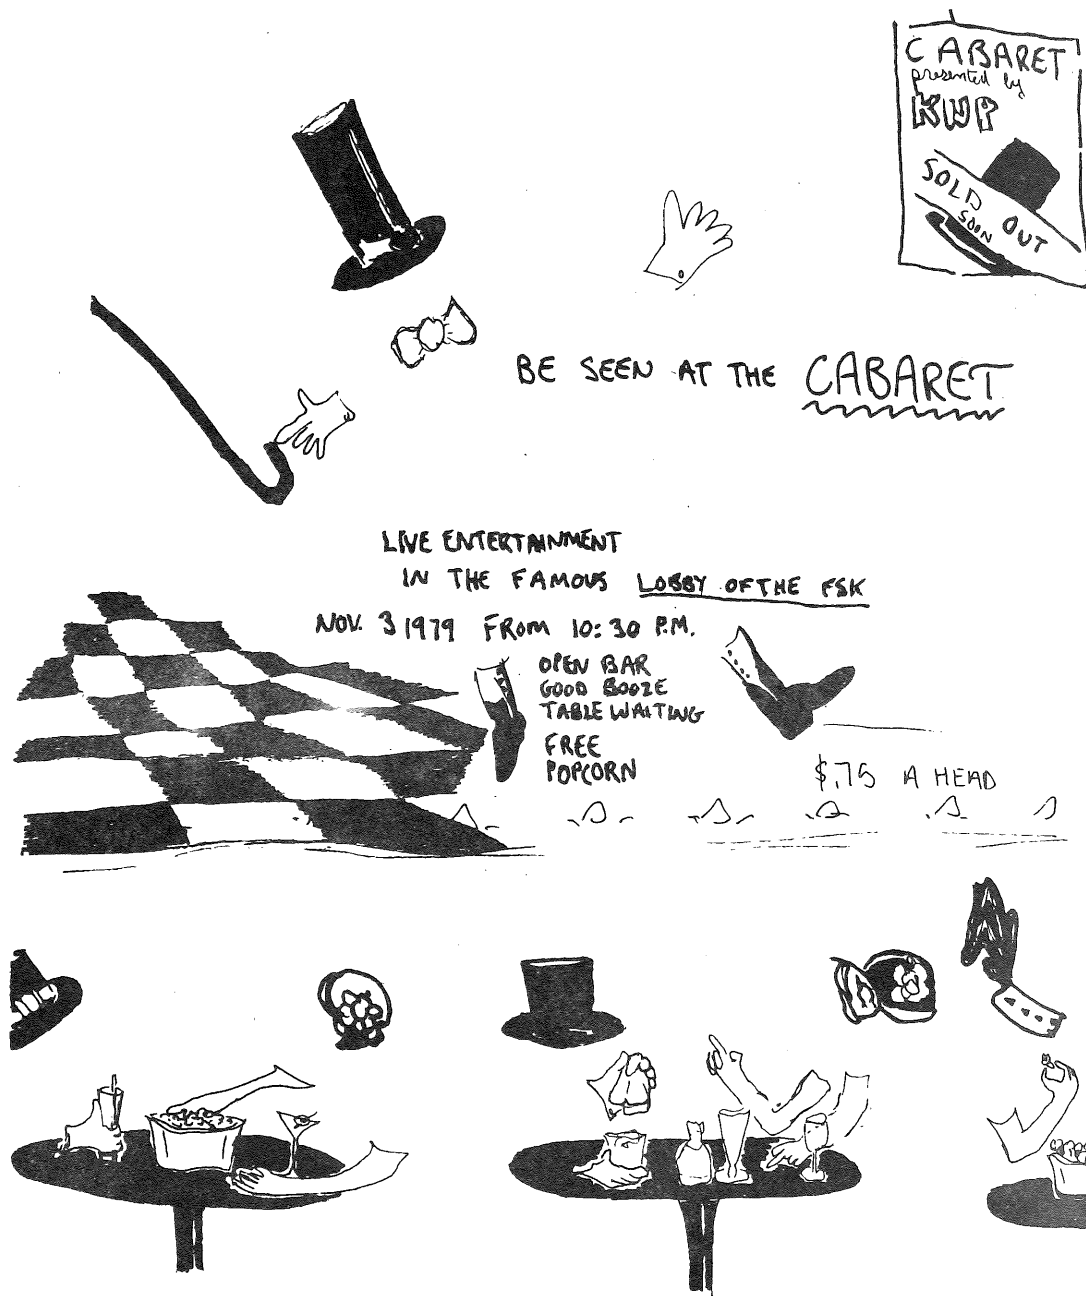 CABARET
presented by
KWP
SOLD OUT
SOON
BE SEEN AT THE CABARET
LIVE ENTERTAINMENT
IN THE FAMOUS LOBBY OF THE FSK
NOV. 3 1979 FROM 10:30 P.M.
OPEN BAR
GOOD BOOZE
TABLE WAITING
FREE
POPCORN
$.75 A HEAD